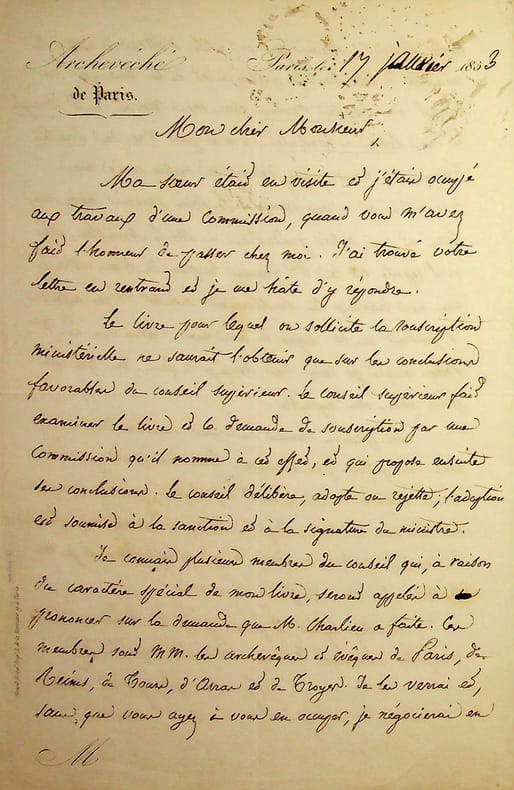 Archevêché
de Paris.
Paris, le 17 janvier 1853
Mon cher Monsieur
Ma sœur était en visite et j'étais occupé
aux travaux d'une Commission, quand vous m'avez
fait l'honneur de passer chez moi. J'ai trouvé votre
lettre en rentrant et je me hâte d'y répondre.
Le livre pour lequel on sollicite la souscription
ministérielle ne saurait l'obtenir que sur les conclusions
favorables du conseil supérieur. Le conseil supérieur fait
examiner le livre et la demande de souscription par une
Commission qu'il nomme à cet effet, et qui propose ensuite
ses conclusions. Le conseil délibère, adopte ou rejette, l'adoption
est soumise à la sanction et à la signature du ministre.
Je connais plusieurs membres du conseil qui, à raison
du caractère spécial de mon livre, seront appelés à
prononcer sur la demande que M. Charlieu a faite. Ces
membres sont MM. les archevêques et évêques de Paris, de
Reims, de Tours, d'Arras et de Troyes. Je les verrai et,
sans que vous ayez à vous en occuper, je négocierai en
M